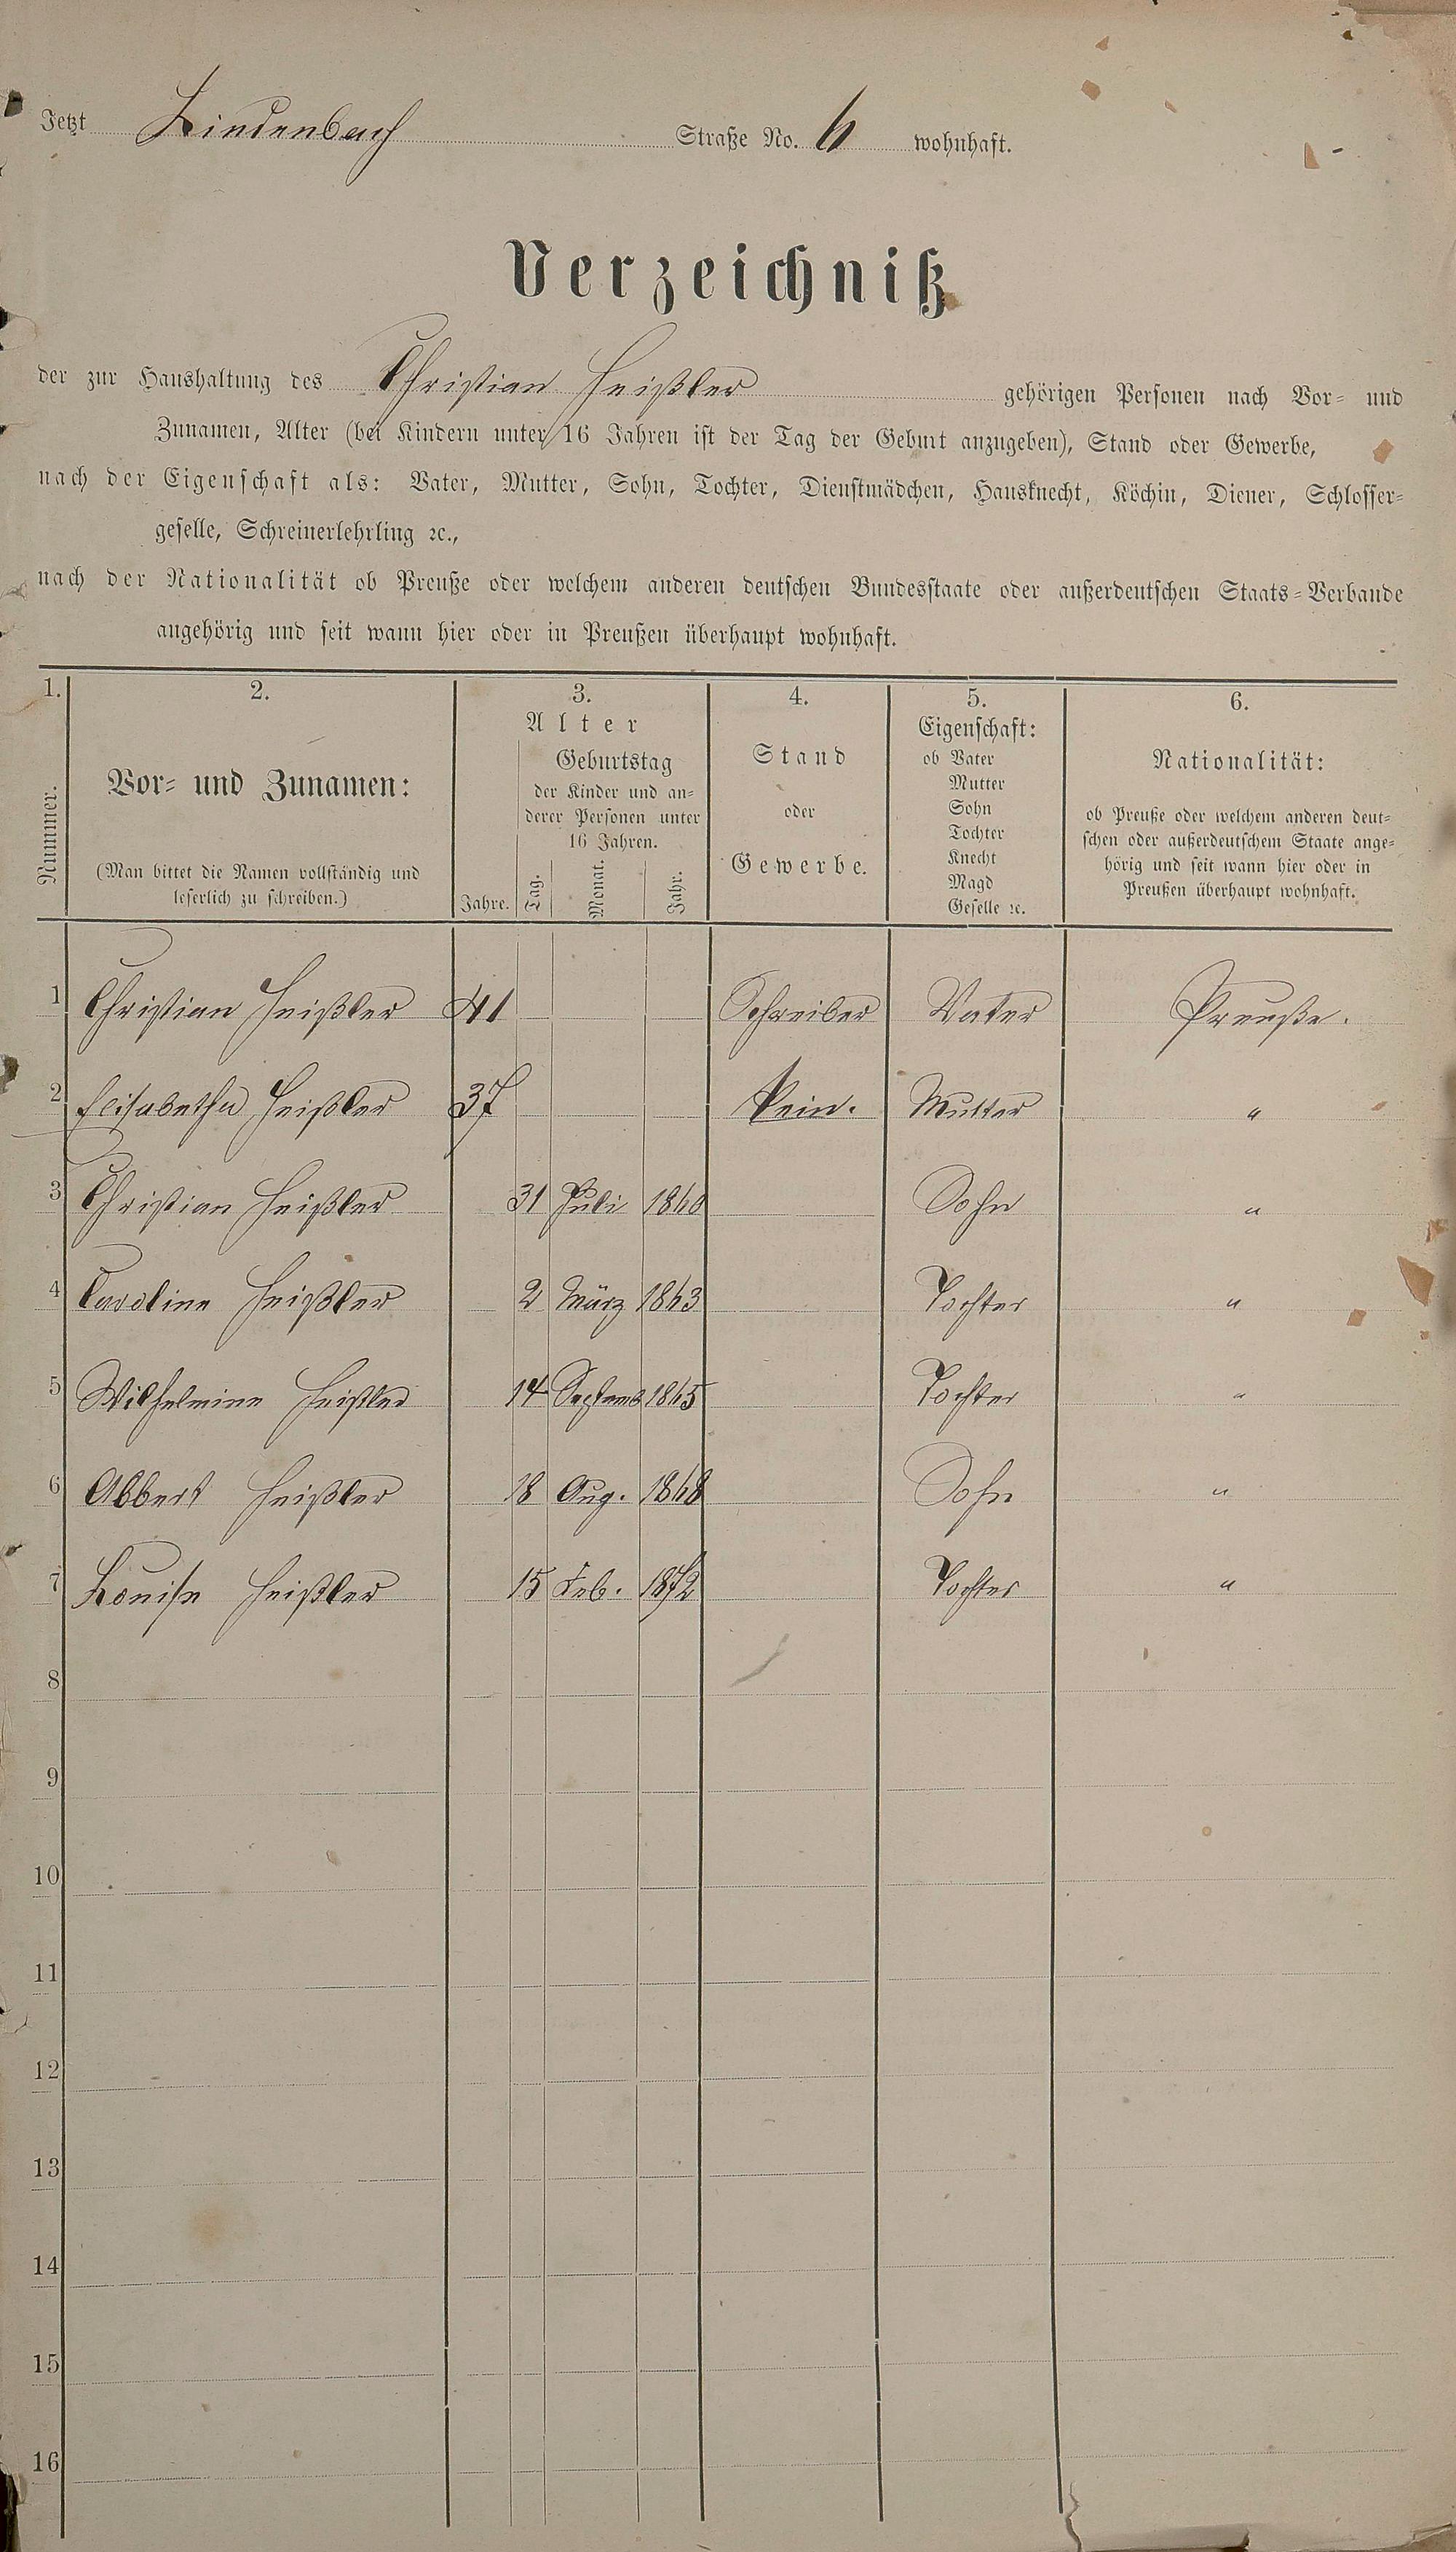 Jetzt Lindenbach Straße No. 6 wohnhaft.
Verzeichniß
der zur Haushaltung des Christian Heißler gehörigen Personen nach Vor- und
Zunamen, Alter (bei Kindern unter 16 Jahren ist der Tag der Geburt anzugeben), Stand oder Gewerbe,
nach der Eigenschaft als: Vater, Mutter, Sohn, Tochter, Dienstmädchen, Hausknecht, Köchin, Diener, Schlosser-
geselle, Schreinerlehrling ꝛc.,
nach der Nationalität ob Preuße oder welchem anderen deutschen Bundesstaate oder außerdeutschen Staats-Verbande
angehörig und seit wann hier oder in Preußen überhaupt wohnhaft.
1.
Nummer.
2.
Vor- und Zunamen:
(Man bittet die Namen vollständig und
leserlich zu schreiben.)
3.
Alter
Geburtstag
der Kinder und an-
derer Personen unter
16 Jahren.
Jahre. Tag. Monat. Jahr.
4.
Stand
oder
Gewerbe.
5.
Eigenschaft:
ob Vater
Mutter
Sohn
Tochter
Knecht
Magd
Geselle ꝛc.
6.
Nationalität:
ob Preuße oder welchem anderen deut-
schen oder außerdeutschem Staate ange-
hörig und seit wann hier oder in
Preußen überhaupt wohnhaft.
1 Christian Heißler 41 Schreiber Vater Preuße.
2 Elisabetha Heißler 37 Kein. Mutter "
3 Christian Heißler 31 Juli 1860 Sohn "
4 Caroline Heißler 2 März 1863 Tochter "
5 Wilhelmine Heißler 14 Septemb 1865 Tochter "
6 Albert Heißler 18 Aug. 1868 Sohn "
7 Louise Heißler 15 Feb. 1872 Tochter "
8
9
10
11
12
13
14
15
16